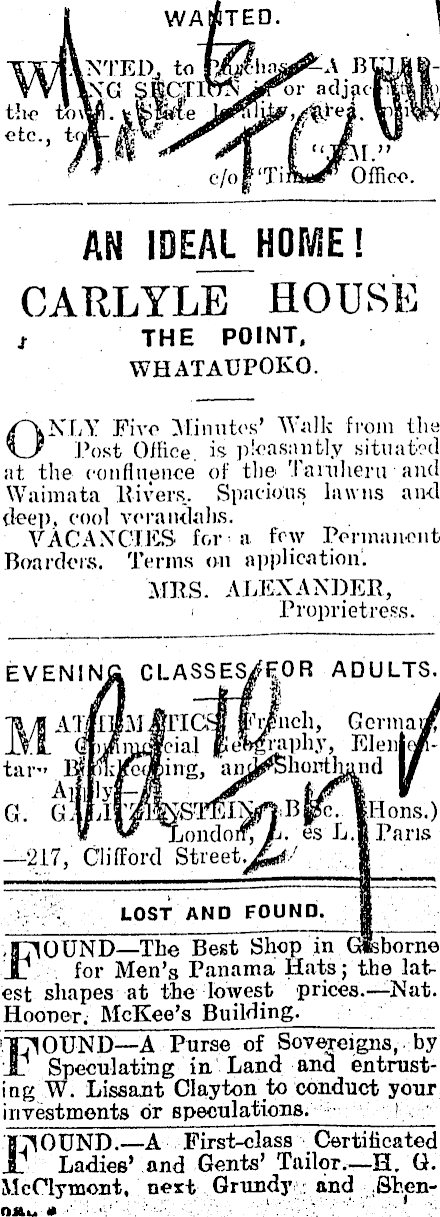 WANTED.
WANTED, to Purchase—A BUILD-
ING SECTION in or adjacent to
the town. State locality, area, price,
etc., to—
"J.M."
c/o "Times" Office.
AN IDEAL HOME!
CARLYLE HOUSE
THE POINT,
WHATAUPOKO.
ONLY Five Minutes' Walk from the
Post Office, is pleasantly situated
at the confluence of the Taruheru and
Waimata Rivers. Spacious lawns and
deep, cool verandahs.
VACANCIES for a few Permanent
Boarders. Terms on application.
MRS. ALEXANDER,
Proprietress.
EVENING CLASSES FOR ADULTS.
MATHEMATICS, French, German,
Commercial Geography, Elemen-
tary Bookkeeping, and Shorthand
Apply—
G. B.Sc. (Hons.)
London, L. es L. Paris
—217, Clifford Street.
LOST AND FOUND.
FOUND—The Best Shop in Gisborne
for Men's Panama Hats; the lat-
est shapes at the lowest prices.—Nat.
Hooner, McKee's Building.
FOUND—A Purse of Sovereigns, by
Speculating in Land and entrust-
ing W. Lissant Clayton to conduct your
investments or speculations.
FOUND.—A First-class Certificated
Ladies' and Gents' Tailor.—H. G.
McClymont, next Grundy and Shen-